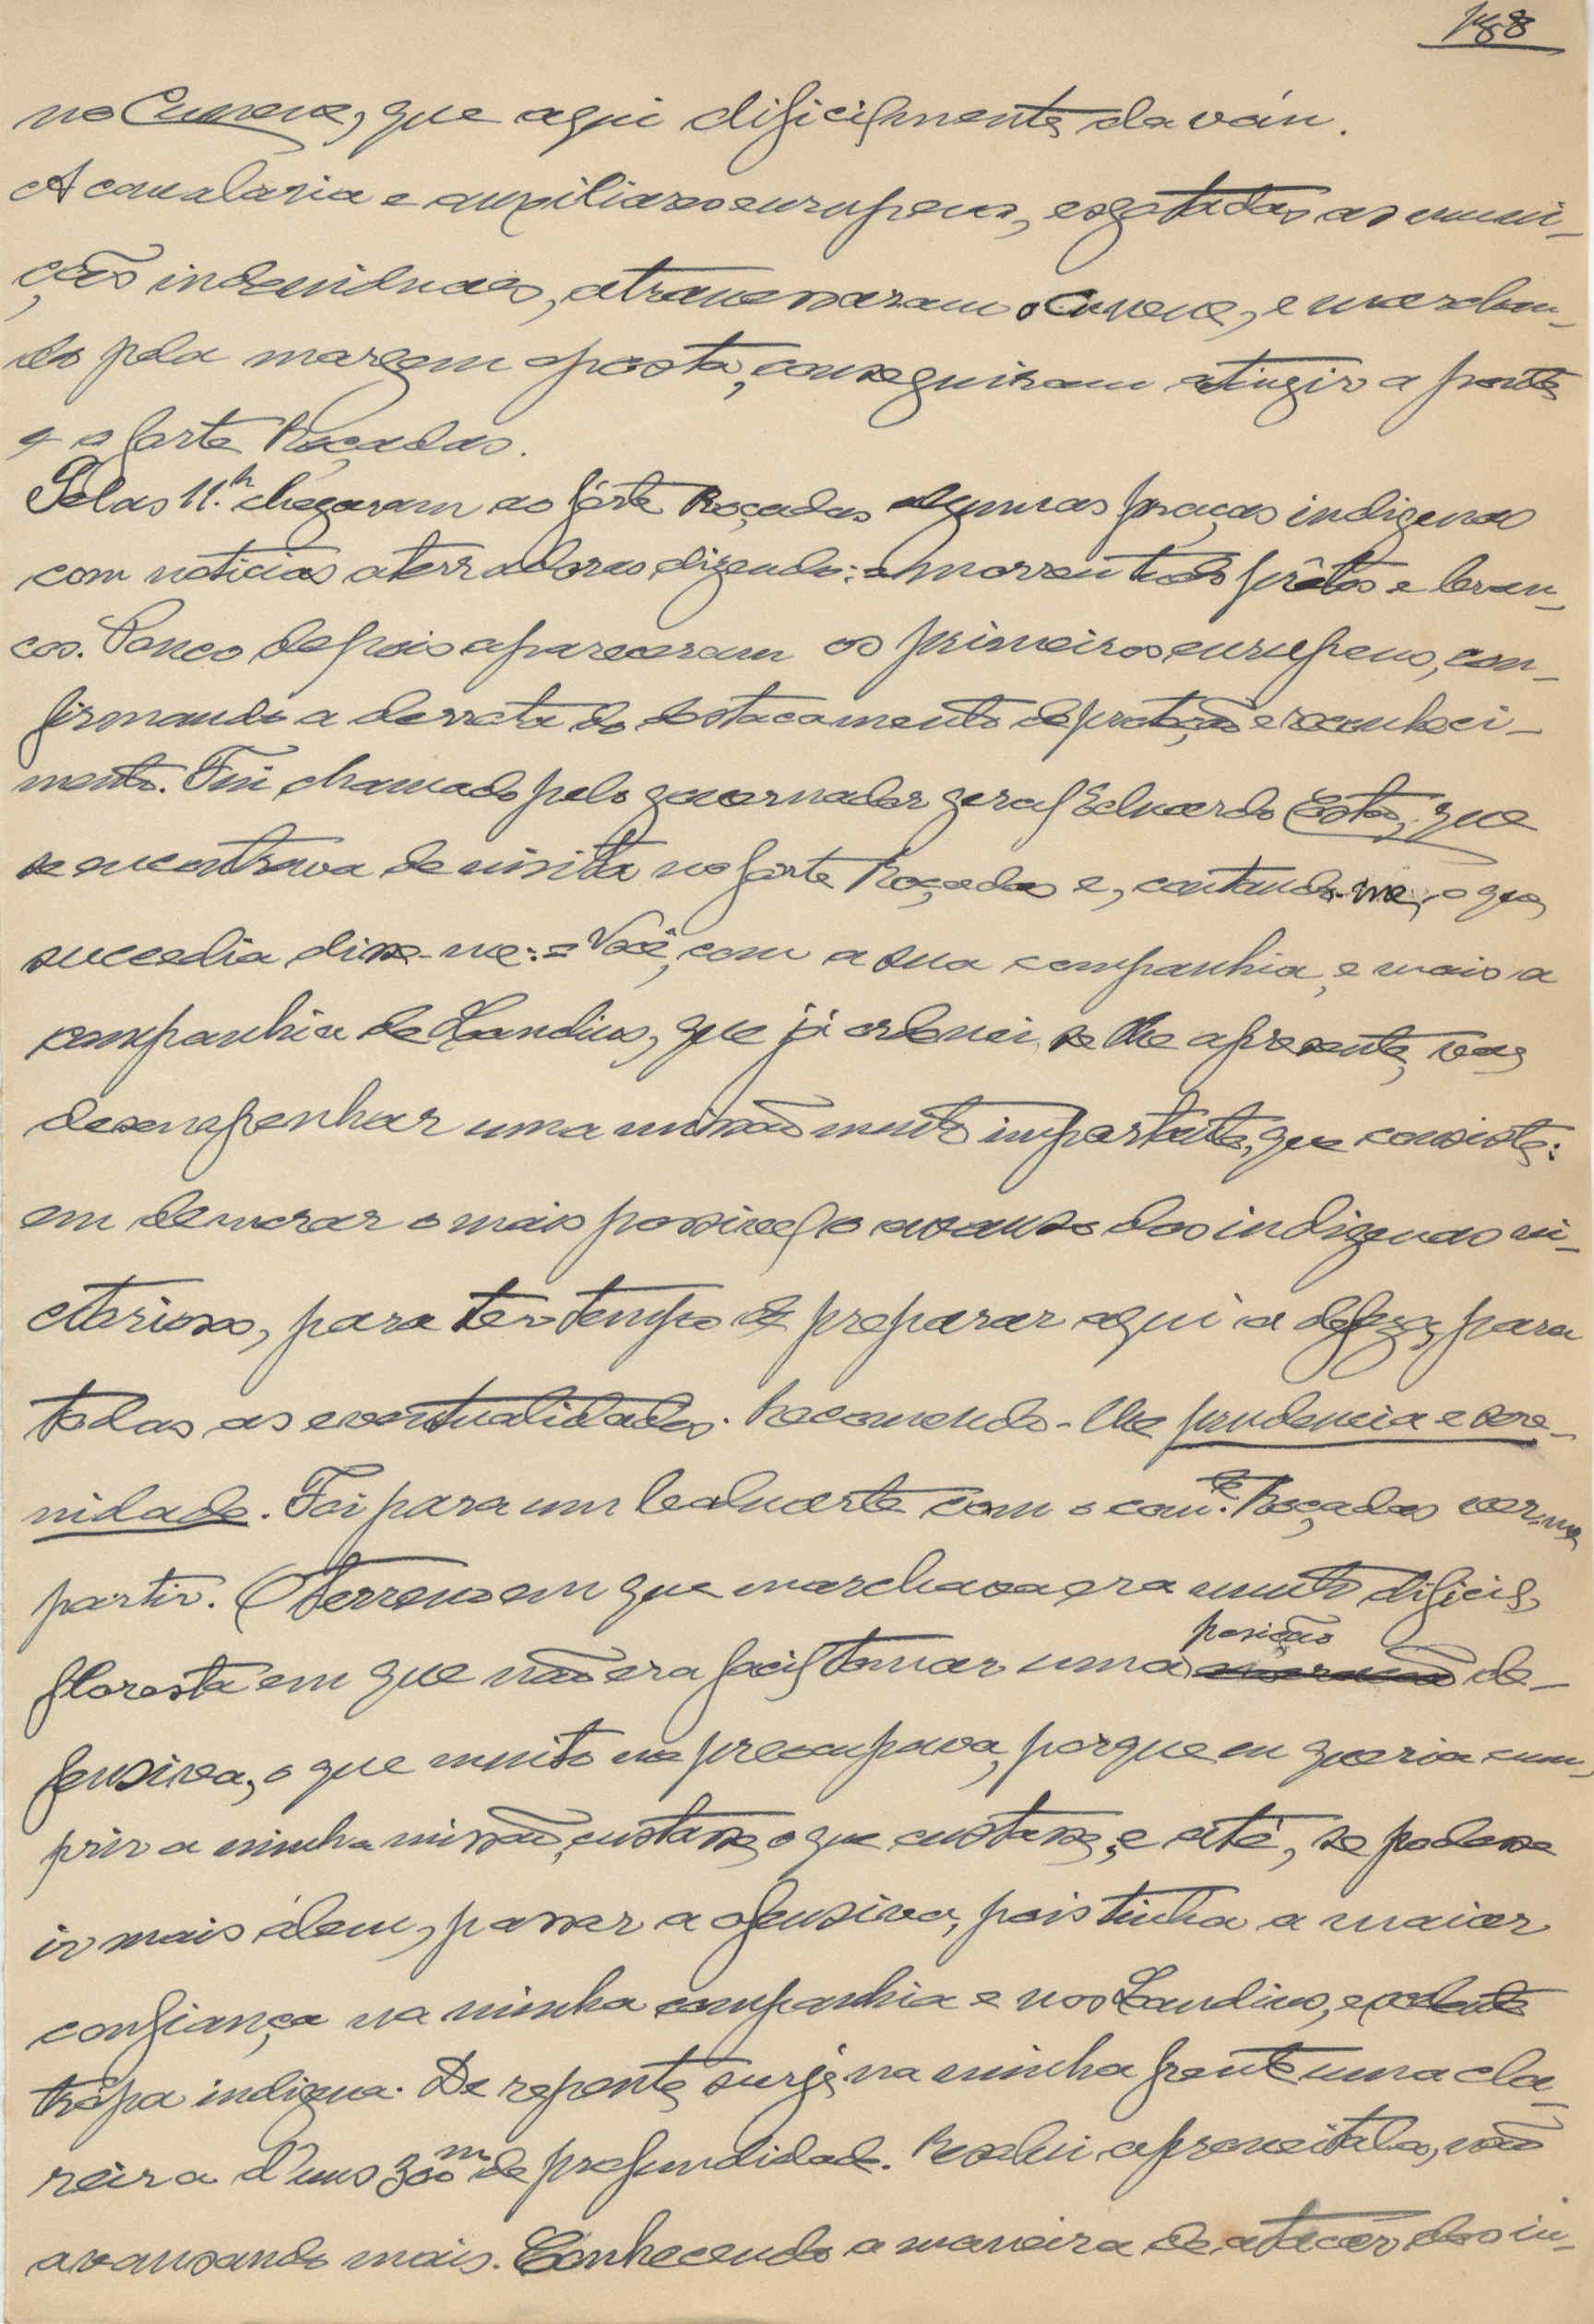 188
no Cunene, que aqui dificilmente da váu.
A cavalaria e auxiliares europeus, esgotadas as muni-
ções individuaes, atravessaram o Cunene, e marchan-
do pela margem oposta, conseguiram atingir a ponte
e o forte Roçadas.
Pelas 11.h chegavam ao fórte Roçadas algumas praças indigenas
com noticias aterradoras dizendo: = morreu tudo prêtos e bran-
cos. Pouco depois apareceram os primeiros europeus, con-
firmando a derrota do destacamento de proteção e reconheci-
mento. Fui chamado pelo governador geral Eduardo Costa, que
se encontrava de visita no forte Roçadas e, contando-me, o que
succedia disse-me: = Você, com a sua companhia, e mais a
companhia de Landins, que já ordenei se lhe apresente, vae
desempenhar uma missão muito importante, que consiste:
em demorar o mais possivel o avanso dos indigenas vi-
ctoriosos, para ter tempo de preparar aqui a defeza, para
todas as eventualidades. Recomendo-lhe prudencia e sere-
nidade. Foi para um baluarte com o com.te Roçadas ver-me
partir. O terreno em que marchava era muito dificil,
floresta em que não era facil tomar uma posição de-
fensiva, o que muito me preocupava, porque eu queria cum-
prir a minha missão, custasse o que custasse, e até, se podesse
ir mais álem, passar a ofensiva, pois tinha a maior
confiança na minha companhia e nos Landins, excelente
trópa indigena. De repente, surje na minha frente uma cla-
reira d'uns 300m de profundidade. Resolvi aproveital-a, não
avansando mais. Conhecendo a maneira de atacar dos in-